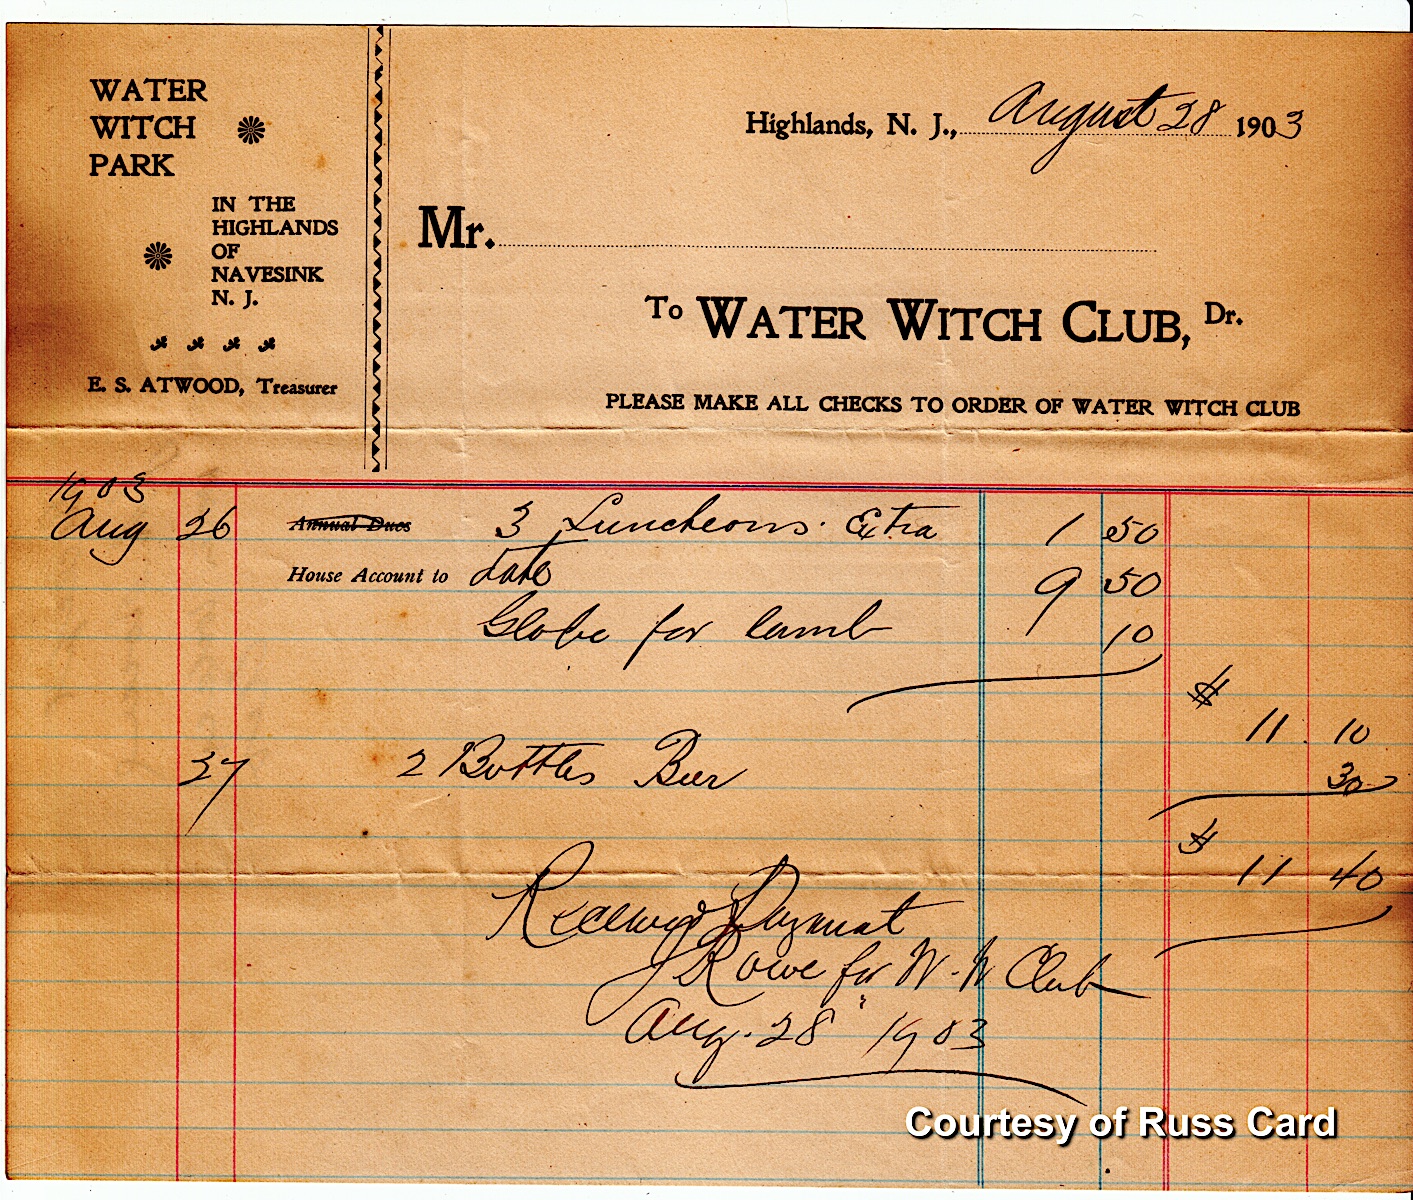 WATER
WITCH
PARK
IN THE
HIGHLANDS
OF
NAVESINK
N. J.
E. S. ATWOOD, Treasurer
Highlands, N. J., August 28 1903
Mr.
To WATER WITCH CLUB, Dr.
PLEASE MAKE ALL CHECKS TO ORDER OF WATER WITCH CLUB
1903
Aug 26 Annual Dues 3 Luncheons Extra 1 50
House Account to date 9 50
Globe for lamb 10
$ 11. 10
27 2 Bottles Beer 30
$ 11 40
Received Payment
J Rowe for W. W Club
Aug. 28" 1903
Courtesy of Russ Card